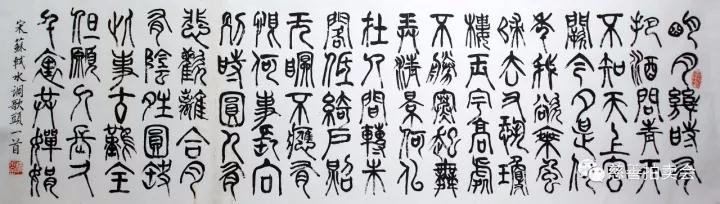 明月幾時有
把酒問青天
不知天上宮
闕今夕是何
年我欲乘風
歸去又恐瓊
樓玉宇高處
不勝寒起舞
弄清影何似
在人間轉朱
閣低綺戶照
無眠不應有
恨何事長向
別時圓人有
悲歡離合月
有陰晴圓缺
此事古難全
但願人長久
千里共嬋娟
宋蘇軾水调歌頭一首
慈善拍卖会